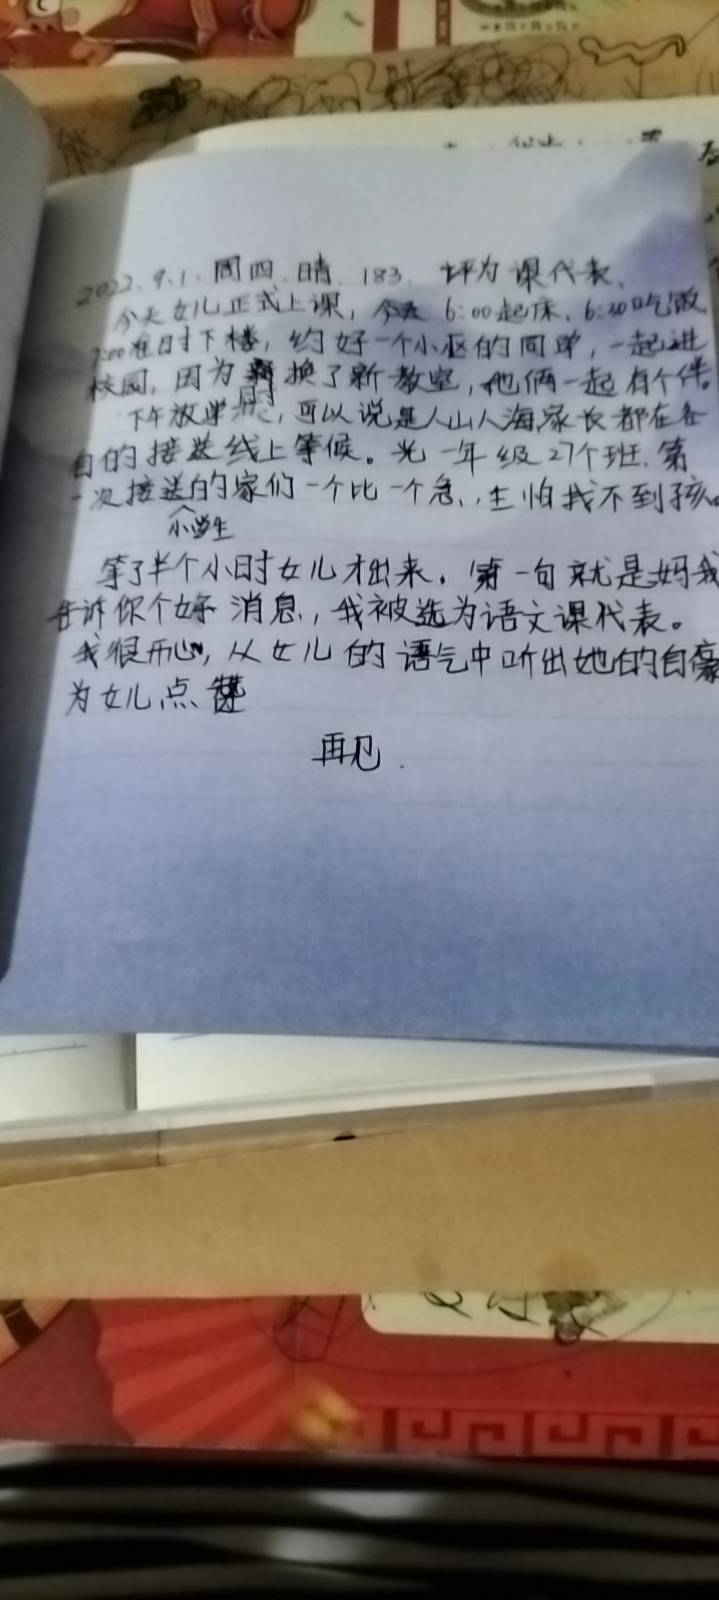 2022.9.1.周四.晴.183. 评为课代表.
今天女儿正式上课,今天6:00起床.6:30吃饭
7:00准时下楼,约好一个小区的同学,一起进
校园,因为换了新教室,他俩一起有个伴。
下午放学时,可以说是人山人海,家长都在各
自的接送线上等候。光一年级27个班.第
一次接送小学生的家们一个比一个急,生怕找不到孩
等了半个小时女儿才出来.第一句就是妈我
告诉你个好消息,我被选为语文课代表。
我很开心,从女儿的语气中听出她的自豪
为女儿点赞
再见.